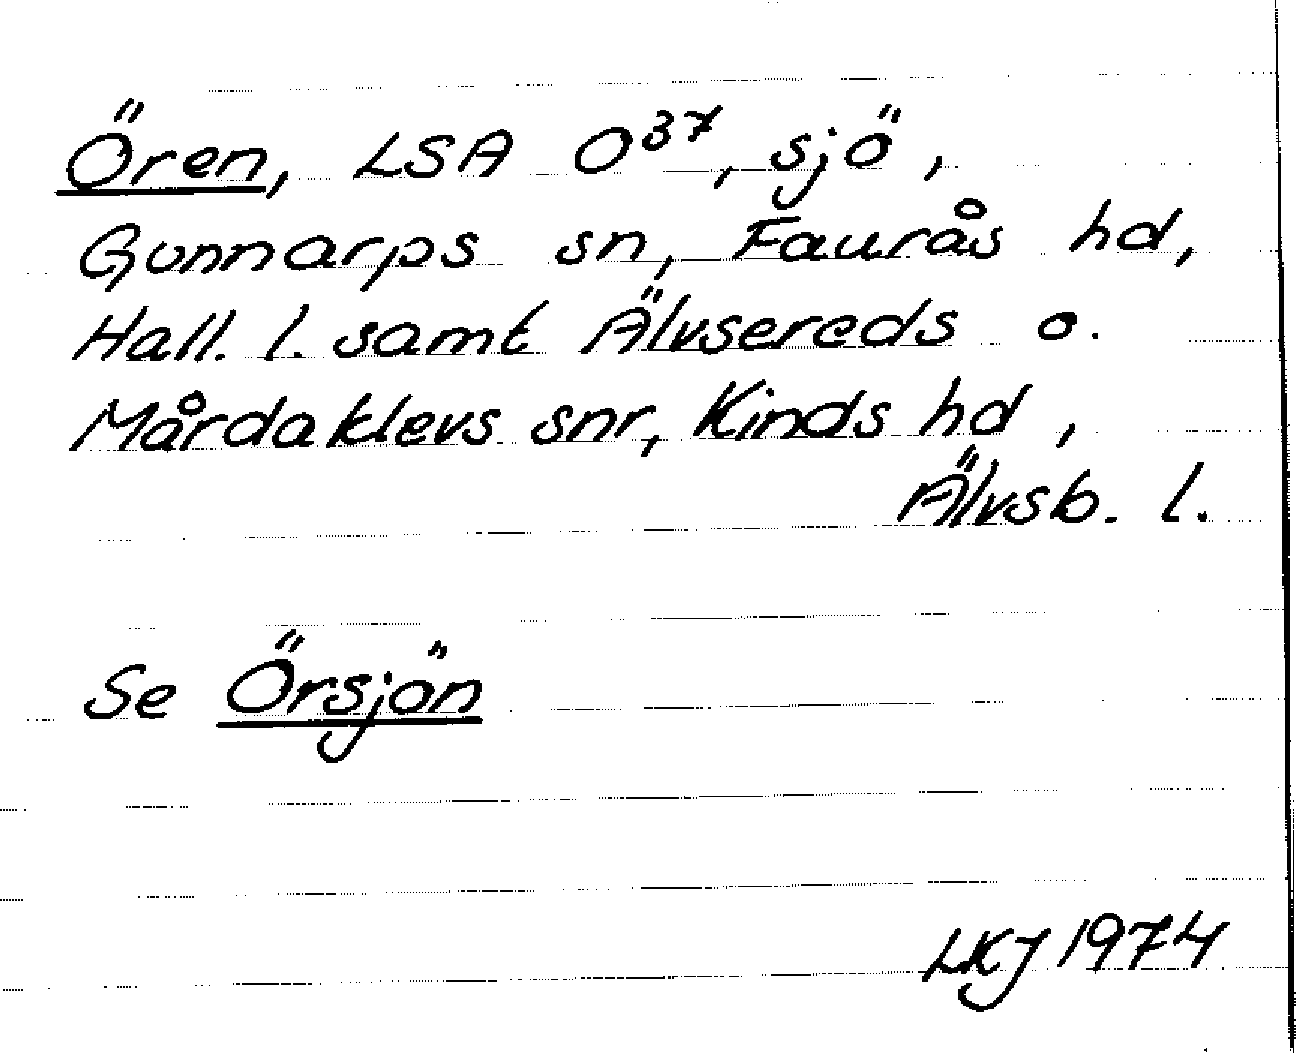 Ören, LSA O³⁷, sjö,
Gunnarps sn, Faurås hd,
Hall. l. samt Älvsereds o.
Mårdaklevs snr, Kinds hd,
Älvsb. l.
Se Örsjön
LKJ 1974